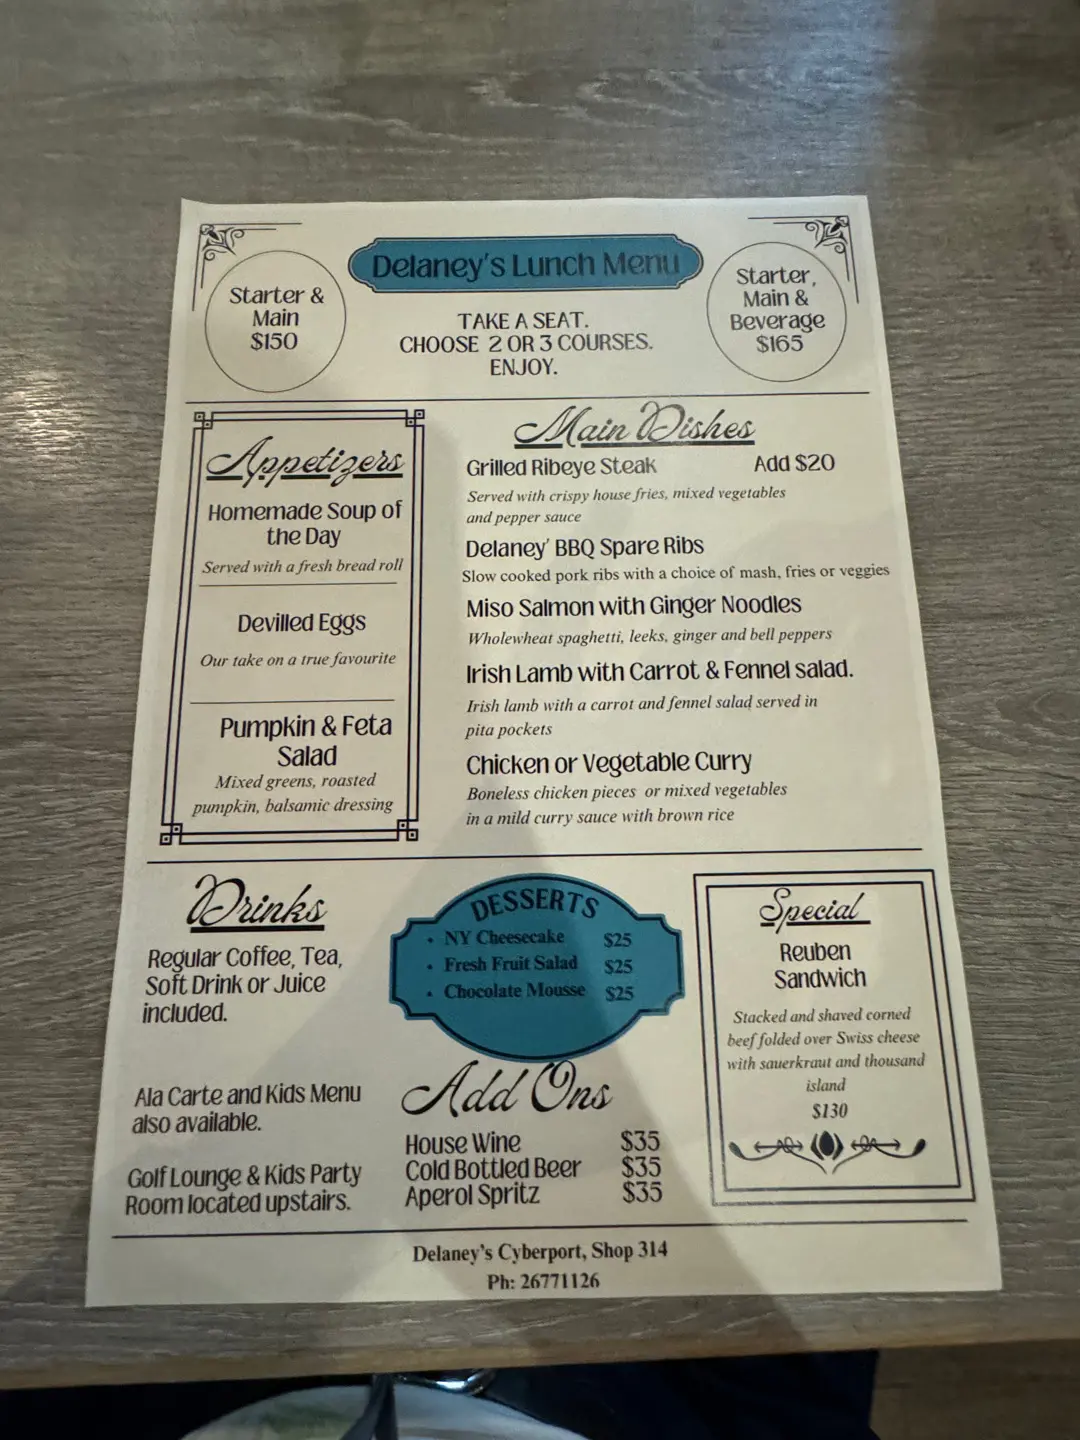 Delaney's Lunch Menu
Starter &
Main
$150
TAKE A SEAT.
CHOOSE 2 OR 3 COURSES.
ENJOY.
Starter,
Main &
Beverage
$165
Appetizers
Homemade Soup of
the Day
Served with a fresh bread roll
Devilled Eggs
Our take on a true favourite
Pumpkin & Feta
Salad
Mixed greens, roasted
pumpkin, balsamic dressing
Main Dishes
Grilled Ribeye Steak Add $20
Served with crispy house fries, mixed vegetables
and pepper sauce
Delaney' BBQ Spare Ribs
Slow cooked pork ribs with a choice of mash, fries or veggies
Miso Salmon with Ginger Noodles
Wholewheat spaghetti, leeks, ginger and bell peppers
Irish Lamb with Carrot & Fennel salad.
Irish lamb with a carrot and fennel salad served in
pita pockets
Chicken or Vegetable Curry
Boneless chicken pieces or mixed vegetables
in a mild curry sauce with brown rice
Drinks
Regular Coffee, Tea,
Soft Drink or Juice
included.
Ala Carte and Kids Menu
also available.
Golf Lounge & Kids Party
Room located upstairs.
DESSERTS
• NY Cheesecake $25
• Fresh Fruit Salad $25
• Chocolate Mousse $25
Add Ons
House Wine $35
Cold Bottled Beer $35
Aperol Spritz $35
Special
Reuben
Sandwich
Stacked and shaved corned
beef folded over Swiss cheese
with sauerkraut and thousand
island
$130
Delaney's Cyberport, Shop 314
Ph: 26771126